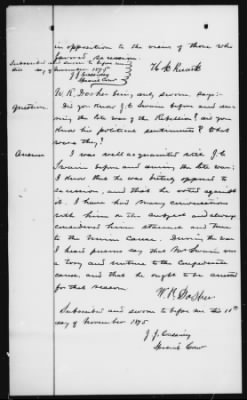 in opposition to the views of those who
favored Secession
Subscribed and sworn to before me
this day of November 1875
J J Cussins
Special Com
W. R. Dosher being duly sworn, says:
Question Do you know J. C. Swain before and dur-
ing the late war of the Rebellion? did you
know his political sentiments? What
were they?
Answer I was well acquainted with J. C.
Swain before and during the late war;
I know that he was bitterly opposed to
secession, and that he voted against
it. I have had many conversations
with him on the subject and always
considered him attached and true
to the Union Cause. During the war
I heard persons say that Mr Swain was
a tory and untrue to the Confederate
cause, and that he ought to be arrested
for that reason
W. R. Dosher
Subscribed and sworn to before me this 11th
day of November 1875
J. J. Cussins
Special Com